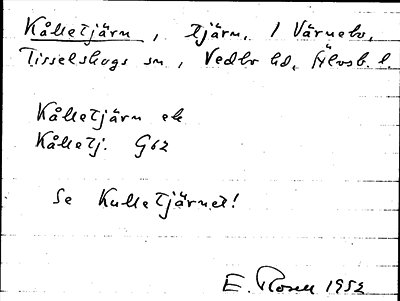 Kålletjärn, tjärn, / Värnebo,
Tisselskogs sn, Vedbo hd, Älvsb. l.
Kålletjärn ek
Kålletj. G62
Se Kulletjärnet!
E. Rosell 1952